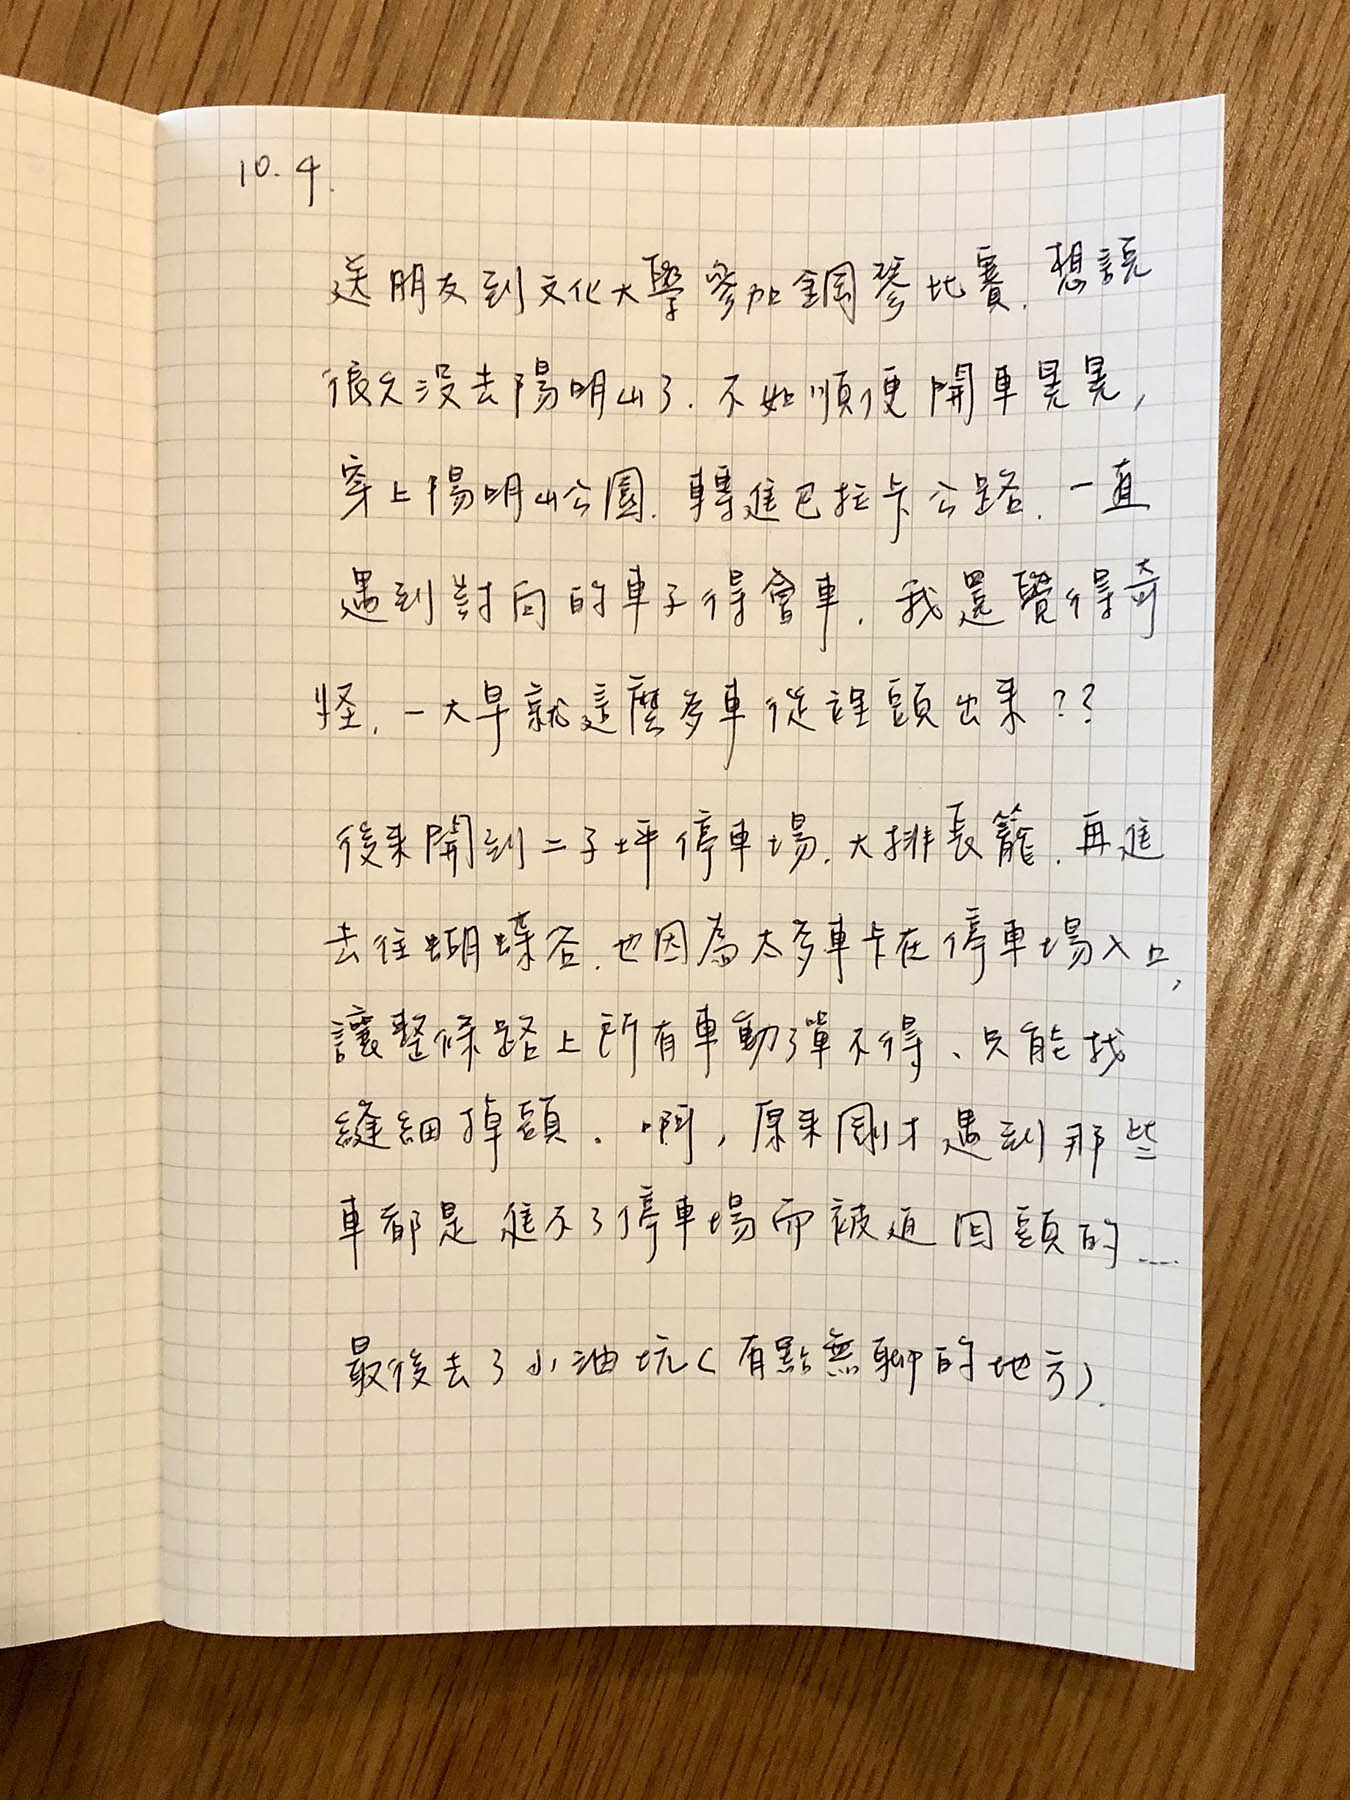 10.4.
送朋友到文化大學參加鋼琴比賽.想說
很久沒去陽明山了.不如順便開車晃晃,
穿上陽明山公園.轉進巴拉卡公路.一直
遇到對向的車子得會車.我還覺得奇
怪.一大早就這麼多車從裡頭出來??
後來開到二子坪停車場.大排長龍.再進
去往蝴蝶谷.也因為太多車卡在停車場入口,
讓整條路上所有車動彈不得、只能找
縫細掉頭.啊,原來剛才遇到那些
車都是進不了停車場而被迫回頭的....
最後去了小油坑(有點無聊的地方).